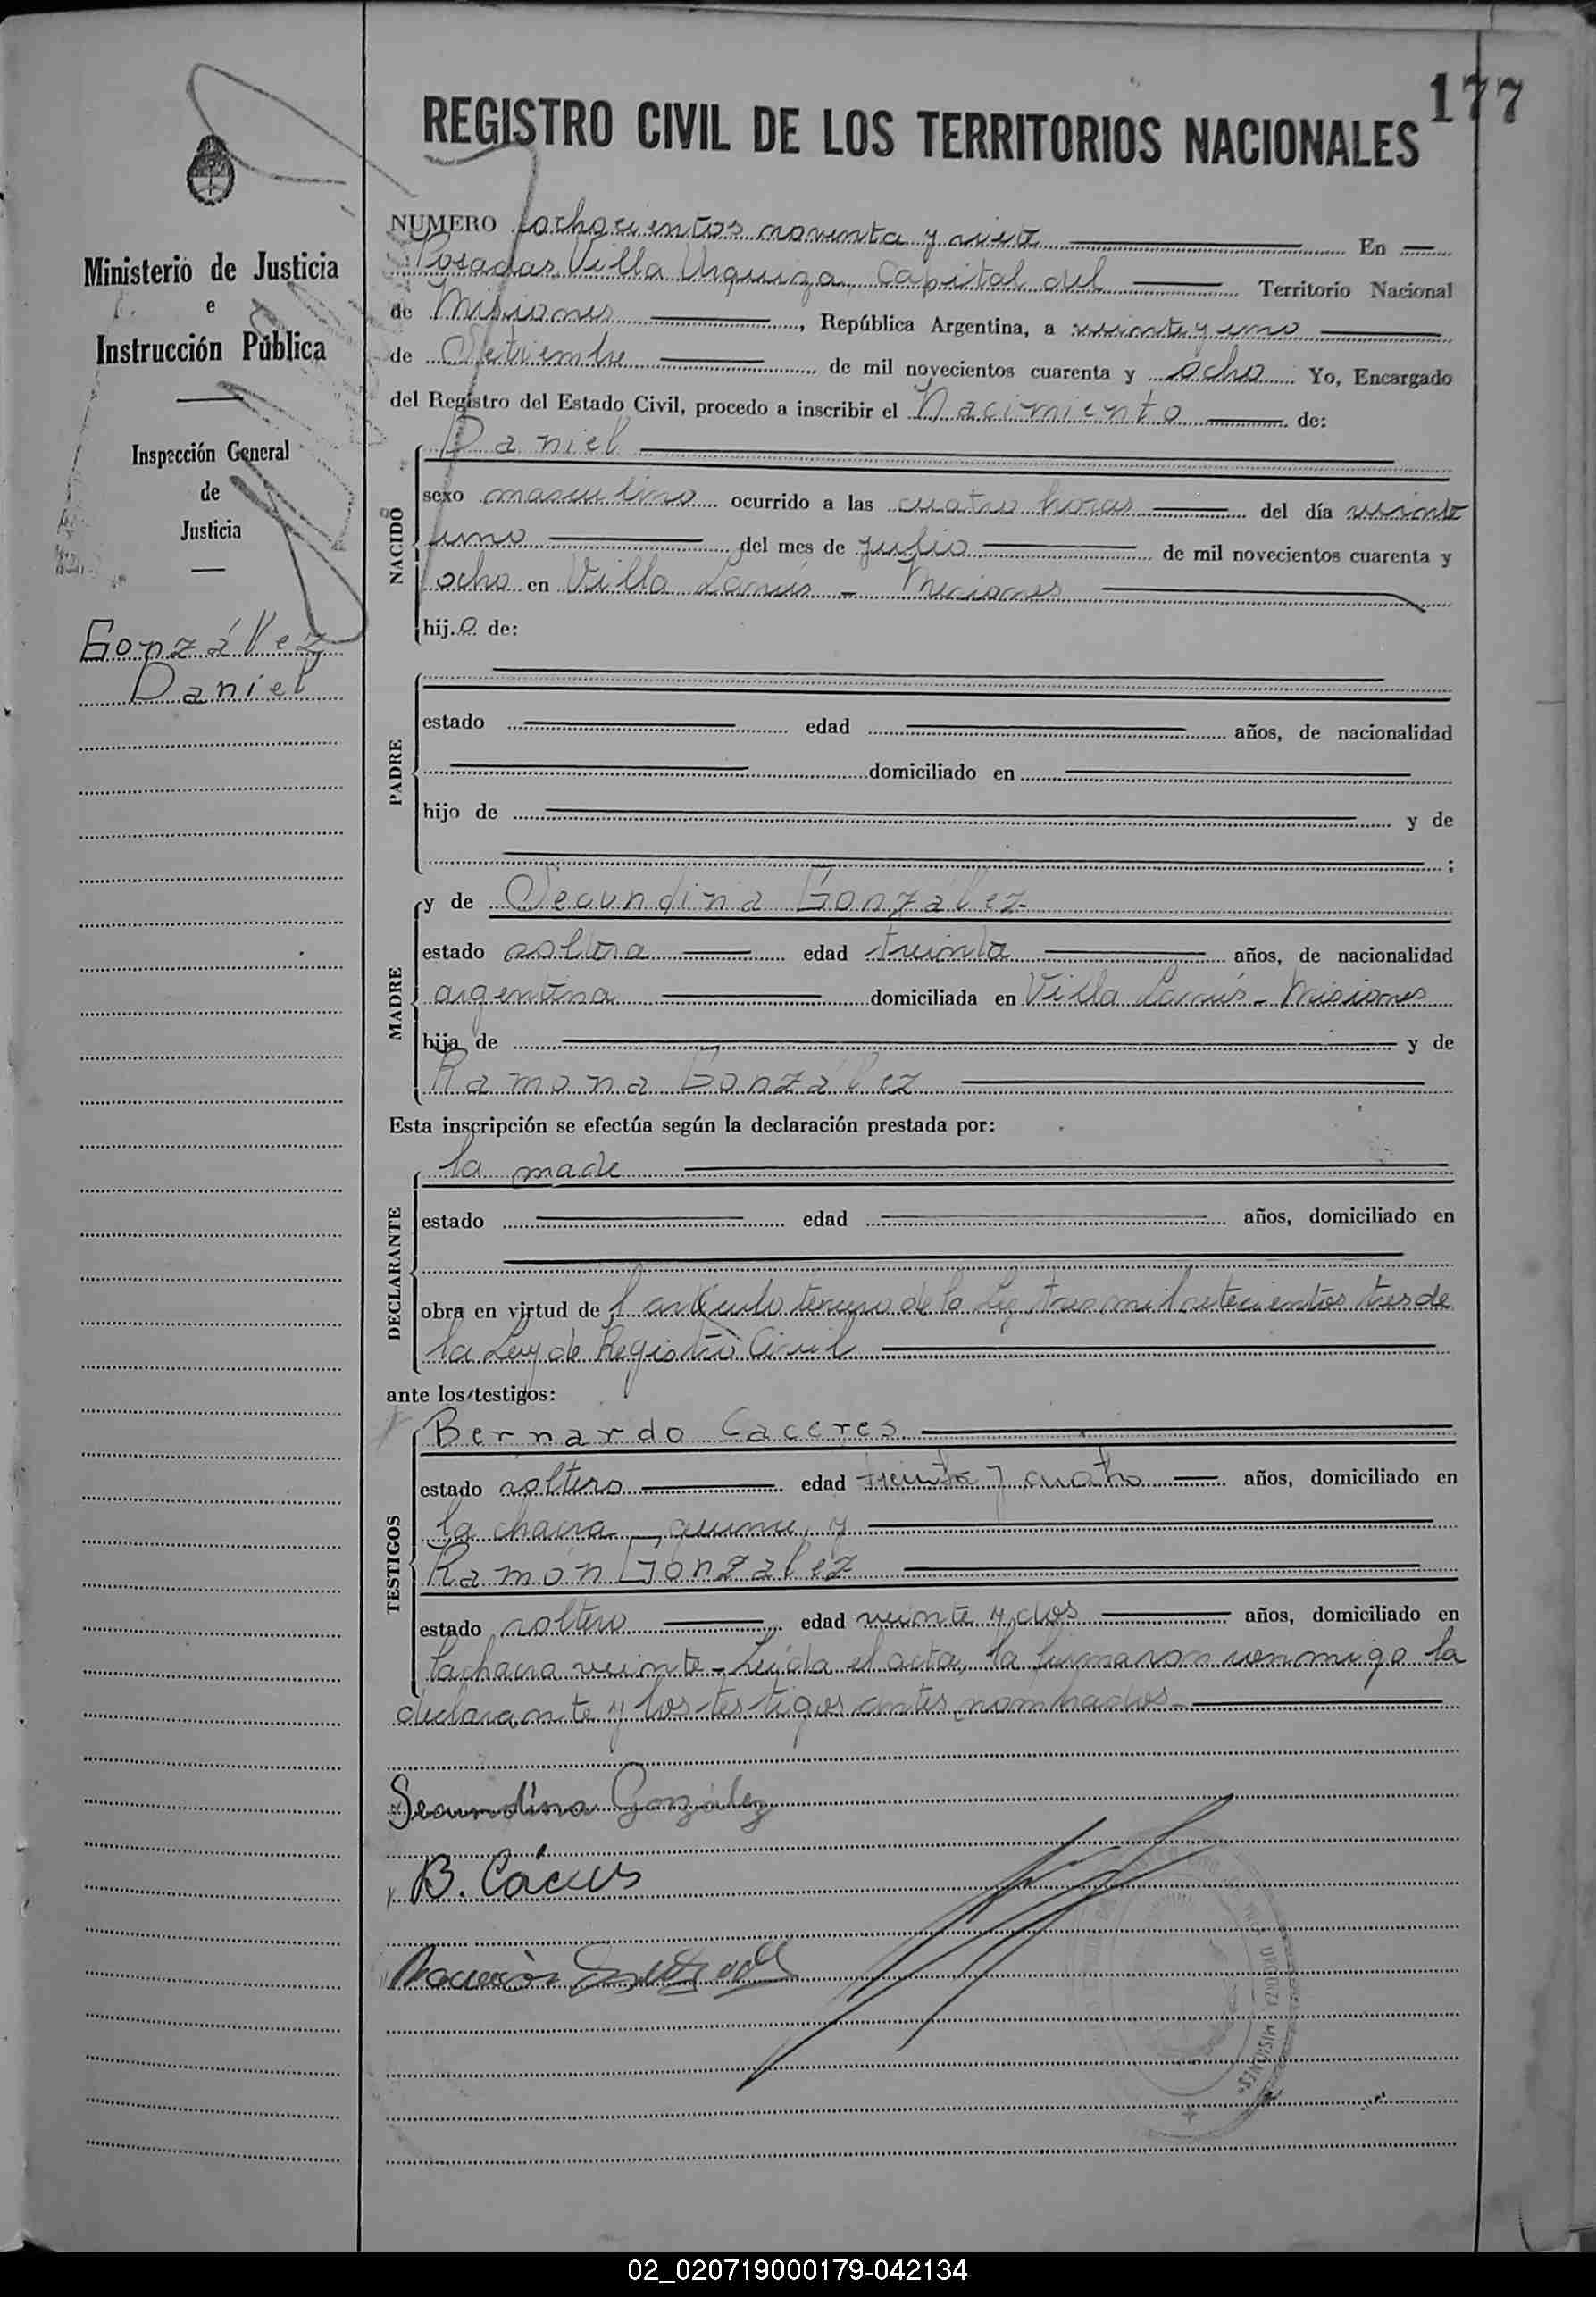 177
REGISTRO CIVIL DE LOS TERRITORIOS NACIONALES
Ministerio de Justicia
e
Instrucción Pública
Inspección General
de
Justicia
González
Daniel
NUMERO ochocientos noventa y siete En
Posadas Villa Urquiza, Capital del Territorio Nacional
de Misiones, República Argentina, a veinte y uno
de Setiembre de mil novecientos cuarenta y ocho Yo, Encargado
del Registro del Estado Civil, procedo a inscribir el Nacimiento de:
NACIDO
Daniel
sexo masculino ocurrido a las cuatro horas del día veinte
uno del mes de julio de mil novecientos cuarenta y
ocho en Villa Lanús - Misiones
hijo de:
PADRE
estado edad años, de nacionalidad
domiciliado en
hijo de y de
;
MADRE
y de Secundina González
estado soltera edad treinta años, de nacionalidad
argentina domiciliada en Villa Lanús - Misiones
hija de y de
Ramona González
Esta inscripción se efectúa según la declaración prestada por:
DECLARANTE
la made
estado edad años, domiciliado en
obra en virtud del artículo tercero de la Ley tres mil setecientos tres de
la Ley de Registro Civil
ante los testigos:
TESTIGOS
Bernardo Caceres
estado soltero edad treinta y cuatro años, domiciliado en
la chacra quince, y
Ramón González
estado soltero edad veinte y dos años, domiciliado en
la chacra veinte - Leída el acta, la firmaron conmigo la
declarante y los testigos antes nombrados.
Secundina González
B. Cáceres
URQUIZA MISIONES
02_020719000179-042134